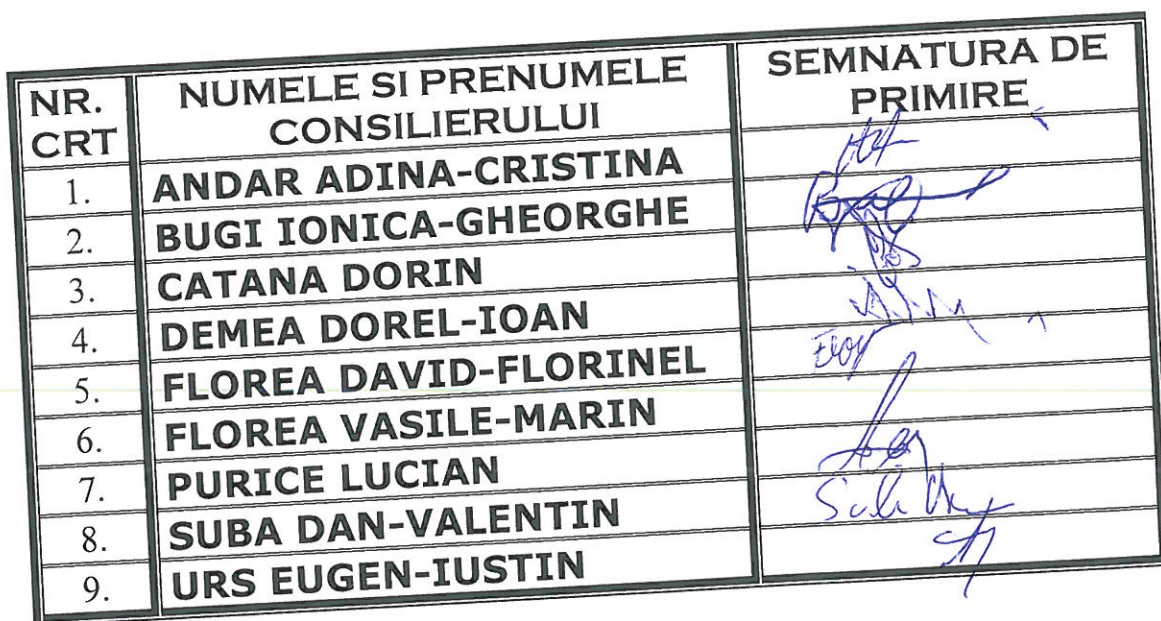 NR. CRT NUMELE SI PRENUMELE CONSILIERULUI SEMNATURA DE PRIMIRE
1. ANDAR ADINA-CRISTINA
2. BUGI IONICA-GHEORGHE
3. CATANA DORIN
4. DEMEA DOREL-IOAN
5. FLOREA DAVID-FLORINEL
6. FLOREA VASILE-MARIN
7. PURICE LUCIAN
8. SUBA DAN-VALENTIN
9. URS EUGEN-IUSTIN